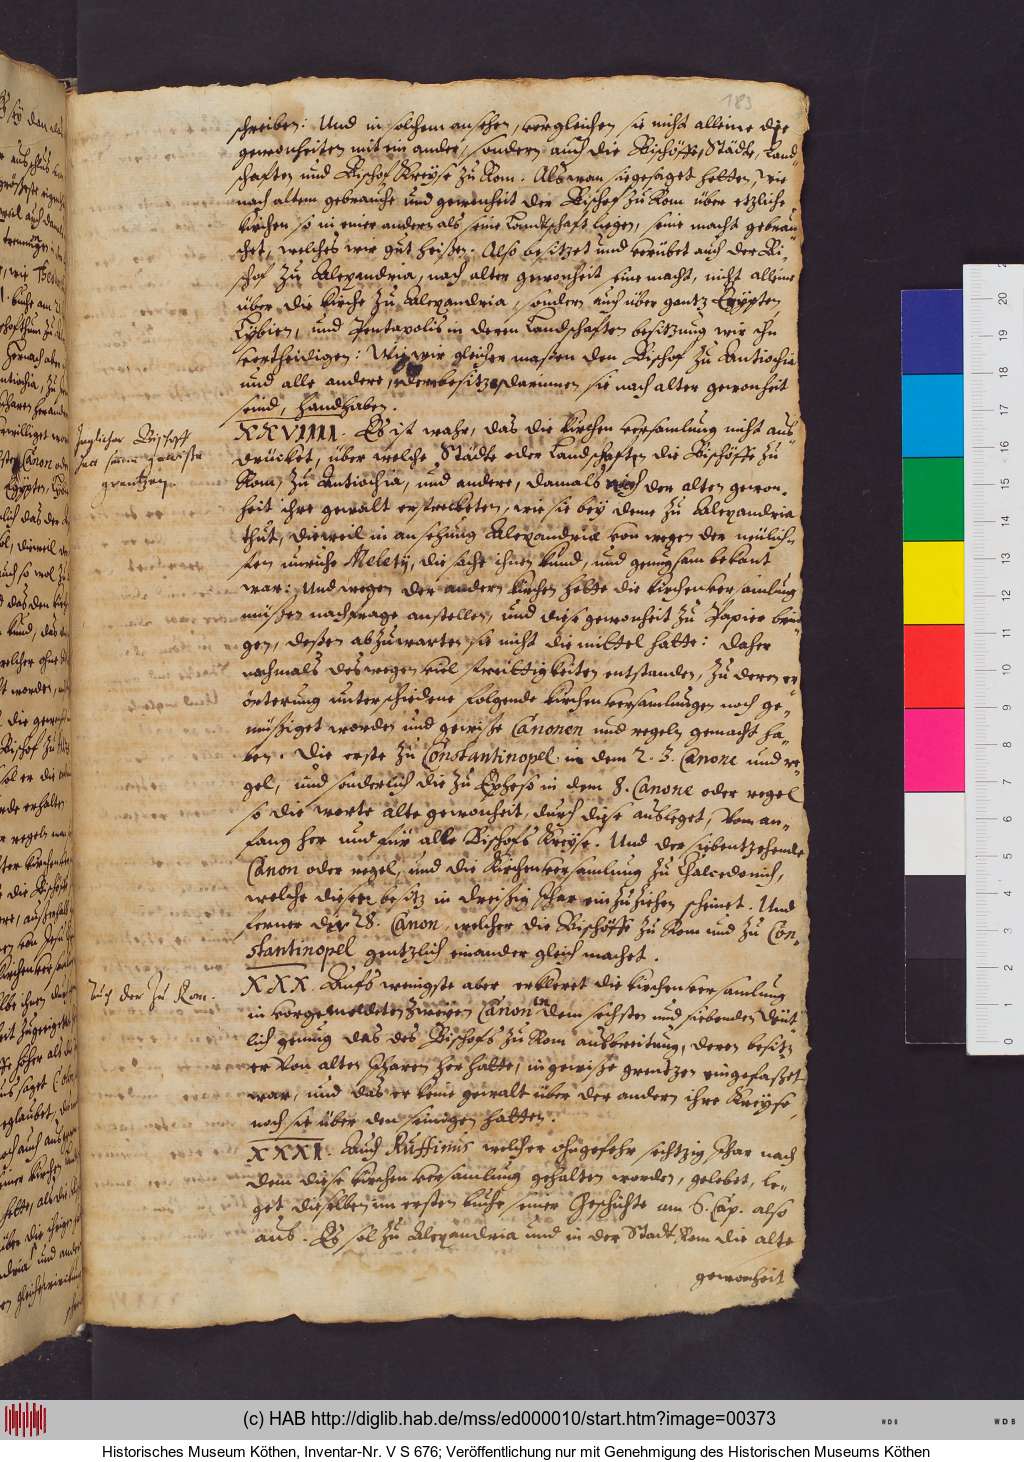 183
schreiben: Und in solchem ansehen, vergleichen sie nicht alleine die
gewonheiten mit ein ander, sondern auch die Bischöffe, Städte, Land-
schaften und Bischofs Kreyse zu Rom. Als wan sie gesaget hetten, wie
nach altem gebrauche und gewonheit der Bischof zu Rom über etzliche
kirchen so in einer andern als seine Landtschaft liegen, seine macht gebrau-
chet, welches wir gut heißen. Also besitzet und verübet auch der Bi-
schof zu Alexandria, nach alter gewonheit seine macht, nicht alleine
über die kirche zu Alexandria, sondern auch über gantz Egÿpten,
Lÿbien, und Pentapolis in deren Landschaften besitzung wir ihn
vertheidigen: Wie wir gleicher maßen den Bischof zu Antiochia
und alle andere, der besitze, darinnen sie nach alter gewonheit
seind, handhaben.
XXVIIII. Es ist wahr, das die kirchen versamlung nicht aus-
drücket, über welche Städte oder Landschaften die Bischöffe zu
Rom, zu Antiochia, und andere, damals nach der alten gewon-
heit ihre gewalt erstrecketen, wie sie beÿ deme zu Alexandria
thut, dieweil in ansehung Alexandriæ von wegen der neülich-
sten unruhe Meletÿ, die sache ihnen kund, und genugsam bekant
war: Und wegen der andern kirchen hette die kirchen versamlung
müßen nachfrage anstellen, und diese gewonheit zu Papier brin-
gen, deßen abzuwarten sie nicht die mittel hatte: Daher
nachmals deswegen viel streittigkeiten entstanden, zu deren er-
örterung unterschiedene folgende kirchen versamlungen noch ge-
müßiget worden und gewisse Canonen und regeln gemacht ha-
ben. Die erste zu Constantinopel in dem 2. 3. Canone und re-
gel, und sonderlich die zu Epheso in dem 8. Canone oder regel
so die worte alte gewonheit, durch diese ausleget, Vom an-
fang her und für alle Bischofs Kreyse. Und der siebentzehende
Canon oder regel, und die Kirchen versamlung zu Chalcedonich,
welche diesen besitz in dreißig Jhar einzuziehen scheinet. Und
ferner der 28. Canon, welcher die Bischöffe zu Rom und zu Con-
stantinopel gentzlich einander gleich machet.
XXX. Aufs wenigste aber erkleret die kirchen versamlung
in vorgemeldeten zweien Canonen dem sechsten und siebenden deüt-
lich genug das des Bischofs zu Rom ausbreitung, deren besitz
er von alten Jharen her hatte, in gewisse grentzen eingefaßet
war, und das er keine gewalt über der andern ihre Kreyse,
noch sie über den seinigen hatten.
XXXI. Auch Ruffinus welcher ohngefehr sechtzig Jhar nach
dem diese kirchen versamlung gehalten worden, gelebet, le-
get dieselben im ersten buche seiner Geschichte am 6. Cap. also
aus. Es sol zu Alexandria und in der Stadt Rom die alte
gewonheit
Jeglicher Bischoff
hat seine gewisse
grentzen.
Auch der zu Rom.
(c) HAB http://diglib.hab.de/mss/ed000010/start.htm?image=00373
Historisches Museum Köthen, Inventar-Nr. V S 676; Veröffentlichung nur mit Genehmigung des Historischen Museums Köthen